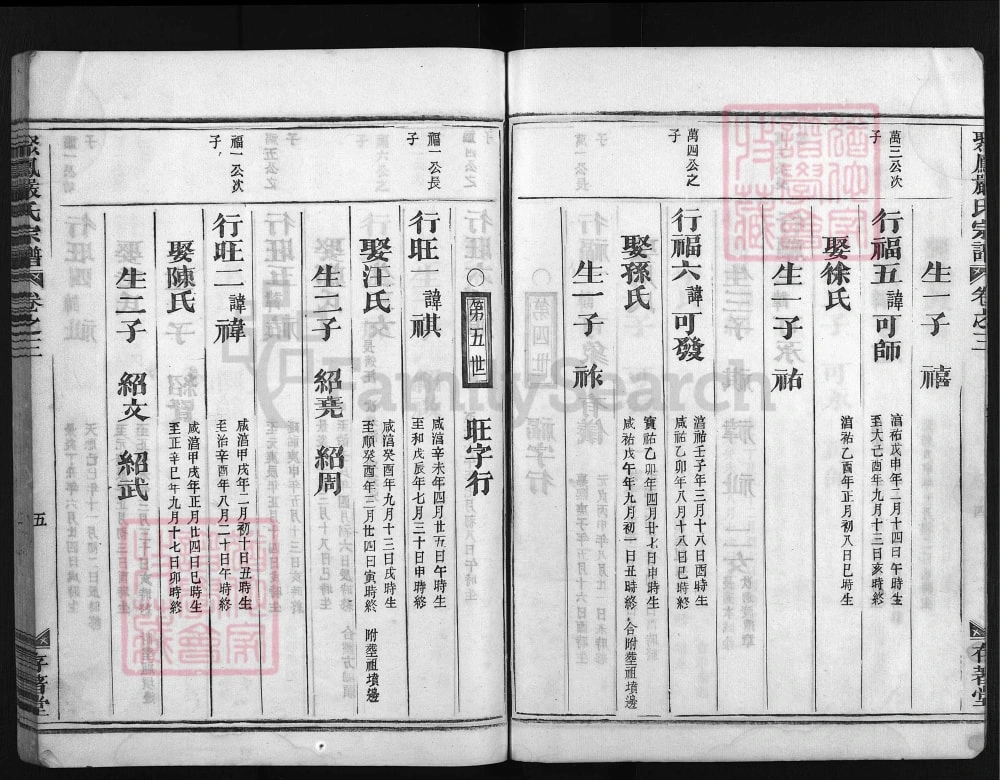 聚鳳嚴氏宗譜 卷之三
存著堂
生一子 禧
萬三公次子
行福五 諱可師 淳祐戊申年二月十四日午時生 至大己酉年九月十三日亥時終
娶徐氏 淳祐乙酉年正月初八日巳時生
生一子 祐
萬四公之子
行福六 諱可發 淳祐壬子年三月十八日酉時生 咸祐乙卯年八月十八日巳時終
娶孫氏 寶祐乙卯年四月廿七日申時生 咸祐戊午年九月初一日丑時終 合附塟祖墳邊
生一子 祚
○ 第五世 旺字行
福一公長子
行旺一 諱祺 咸淳辛未年四月廿五日午時生 至和戊辰年七月三十日申時終
娶汪氏 咸淳癸酉年九月十三日戌時生 至順癸酉年三月廿四日寅時終 附塟祖墳邊
生二子 紹堯 紹周
福一公次子
行旺二 諱禕 咸淳甲戌年二月初十日丑時生 至治辛酉年八月二十日午時終
娶陳氏 咸淳甲戌年正月廿四日巳時生 至正辛巳年九月十七日卯時終
生二子 紹文 紹武
聚鳳嚴氏宗譜 卷之三
五
存著堂
FamilySearch